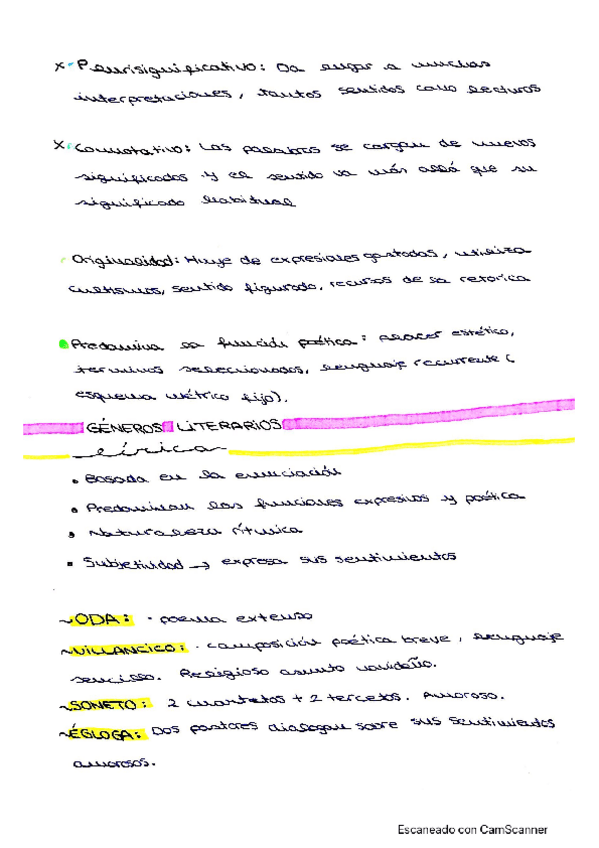 x Plurisignificativo: Da lugar a muchas
interpretaciones, tantos sentidos como lecturas
x Connotativo: Las palabras se cargan de nuevos
significados y el sentido va más allá que su
significado habitual
Originalidad: Huye de expresiones gastadas, utiliza
cultismos, sentido figurado, recursos de la retórica
Predomina la función poética: placer estético,
terminos seleccionados, lenguaje recurrente (
esquema métrico fijo).
GÉNEROS LITERARIOS
Lírica
• Basada en la enunciación
• Predominan las funciones expresiva y poética
• Naturaleza rítmica
• Subjetividad → expresa sus sentimientos
~ODA: · poema extenso
~VILLANCICO: · composición poética breve, lenguaje
sencillo. Religioso asunto navideño.
~SONETO: 2 cuartetos + 2 tercetos. Amoroso.
~ÉGLOGA: Dos pastores dialogan sobre sus sentimientos
amorosos.
Escaneado con CamScanner